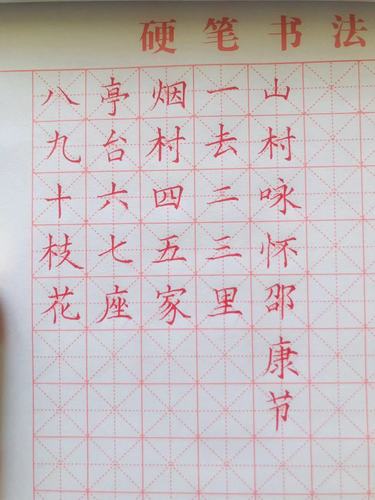 硬笔书法
山村咏怀邵康节
一去二三里
烟村四五家
亭台六七座
八九十枝花